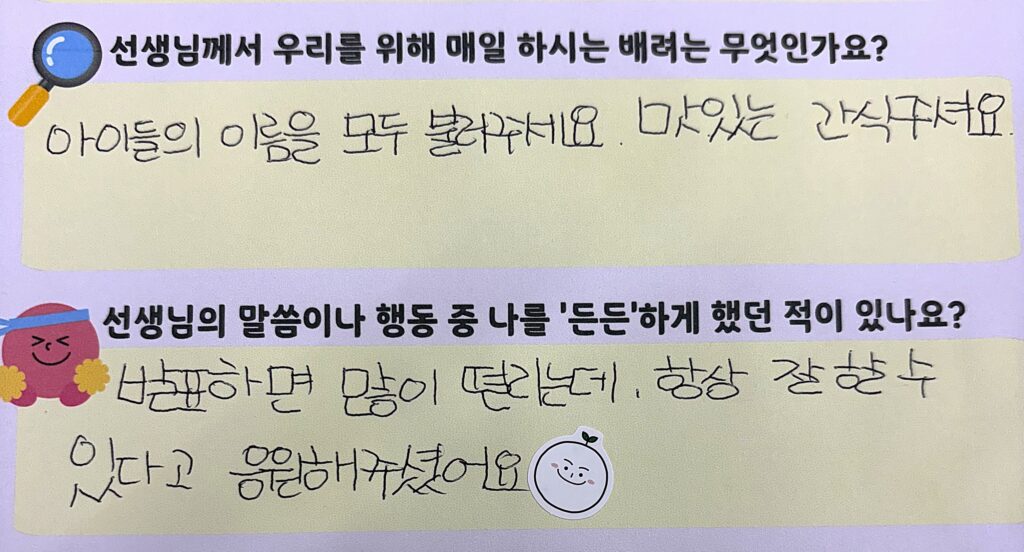 선생님께서 우리를 위해 매일 하시는 배려는 무엇인가요?
아이들의 이름을 모두 불러주세요. 맛있는 간식주셔요.
선생님의 말씀이나 행동 중 나를 '든든'하게 했던 적이 있나요?
발표하면 많이 떨리는데, 항상 잘 할 수
있다고 응원해주셨어요